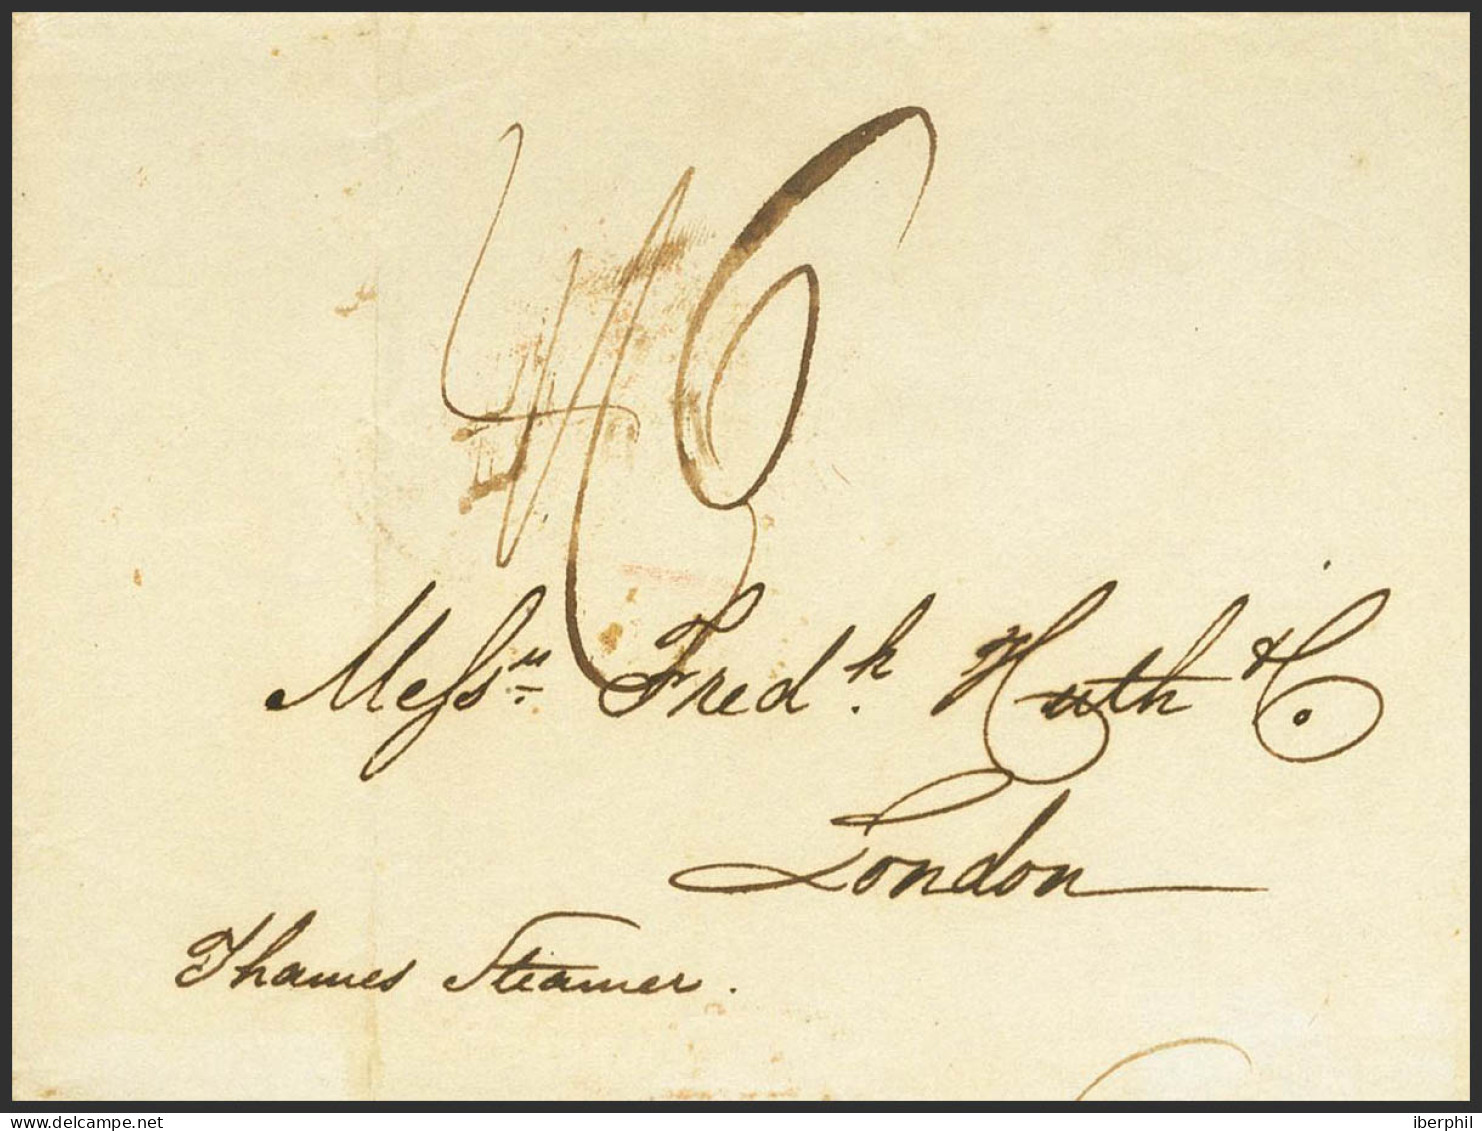 Messrs. Fredk. Huth & Co.
London
Thames Steamer.
delcampe.net
iberphil